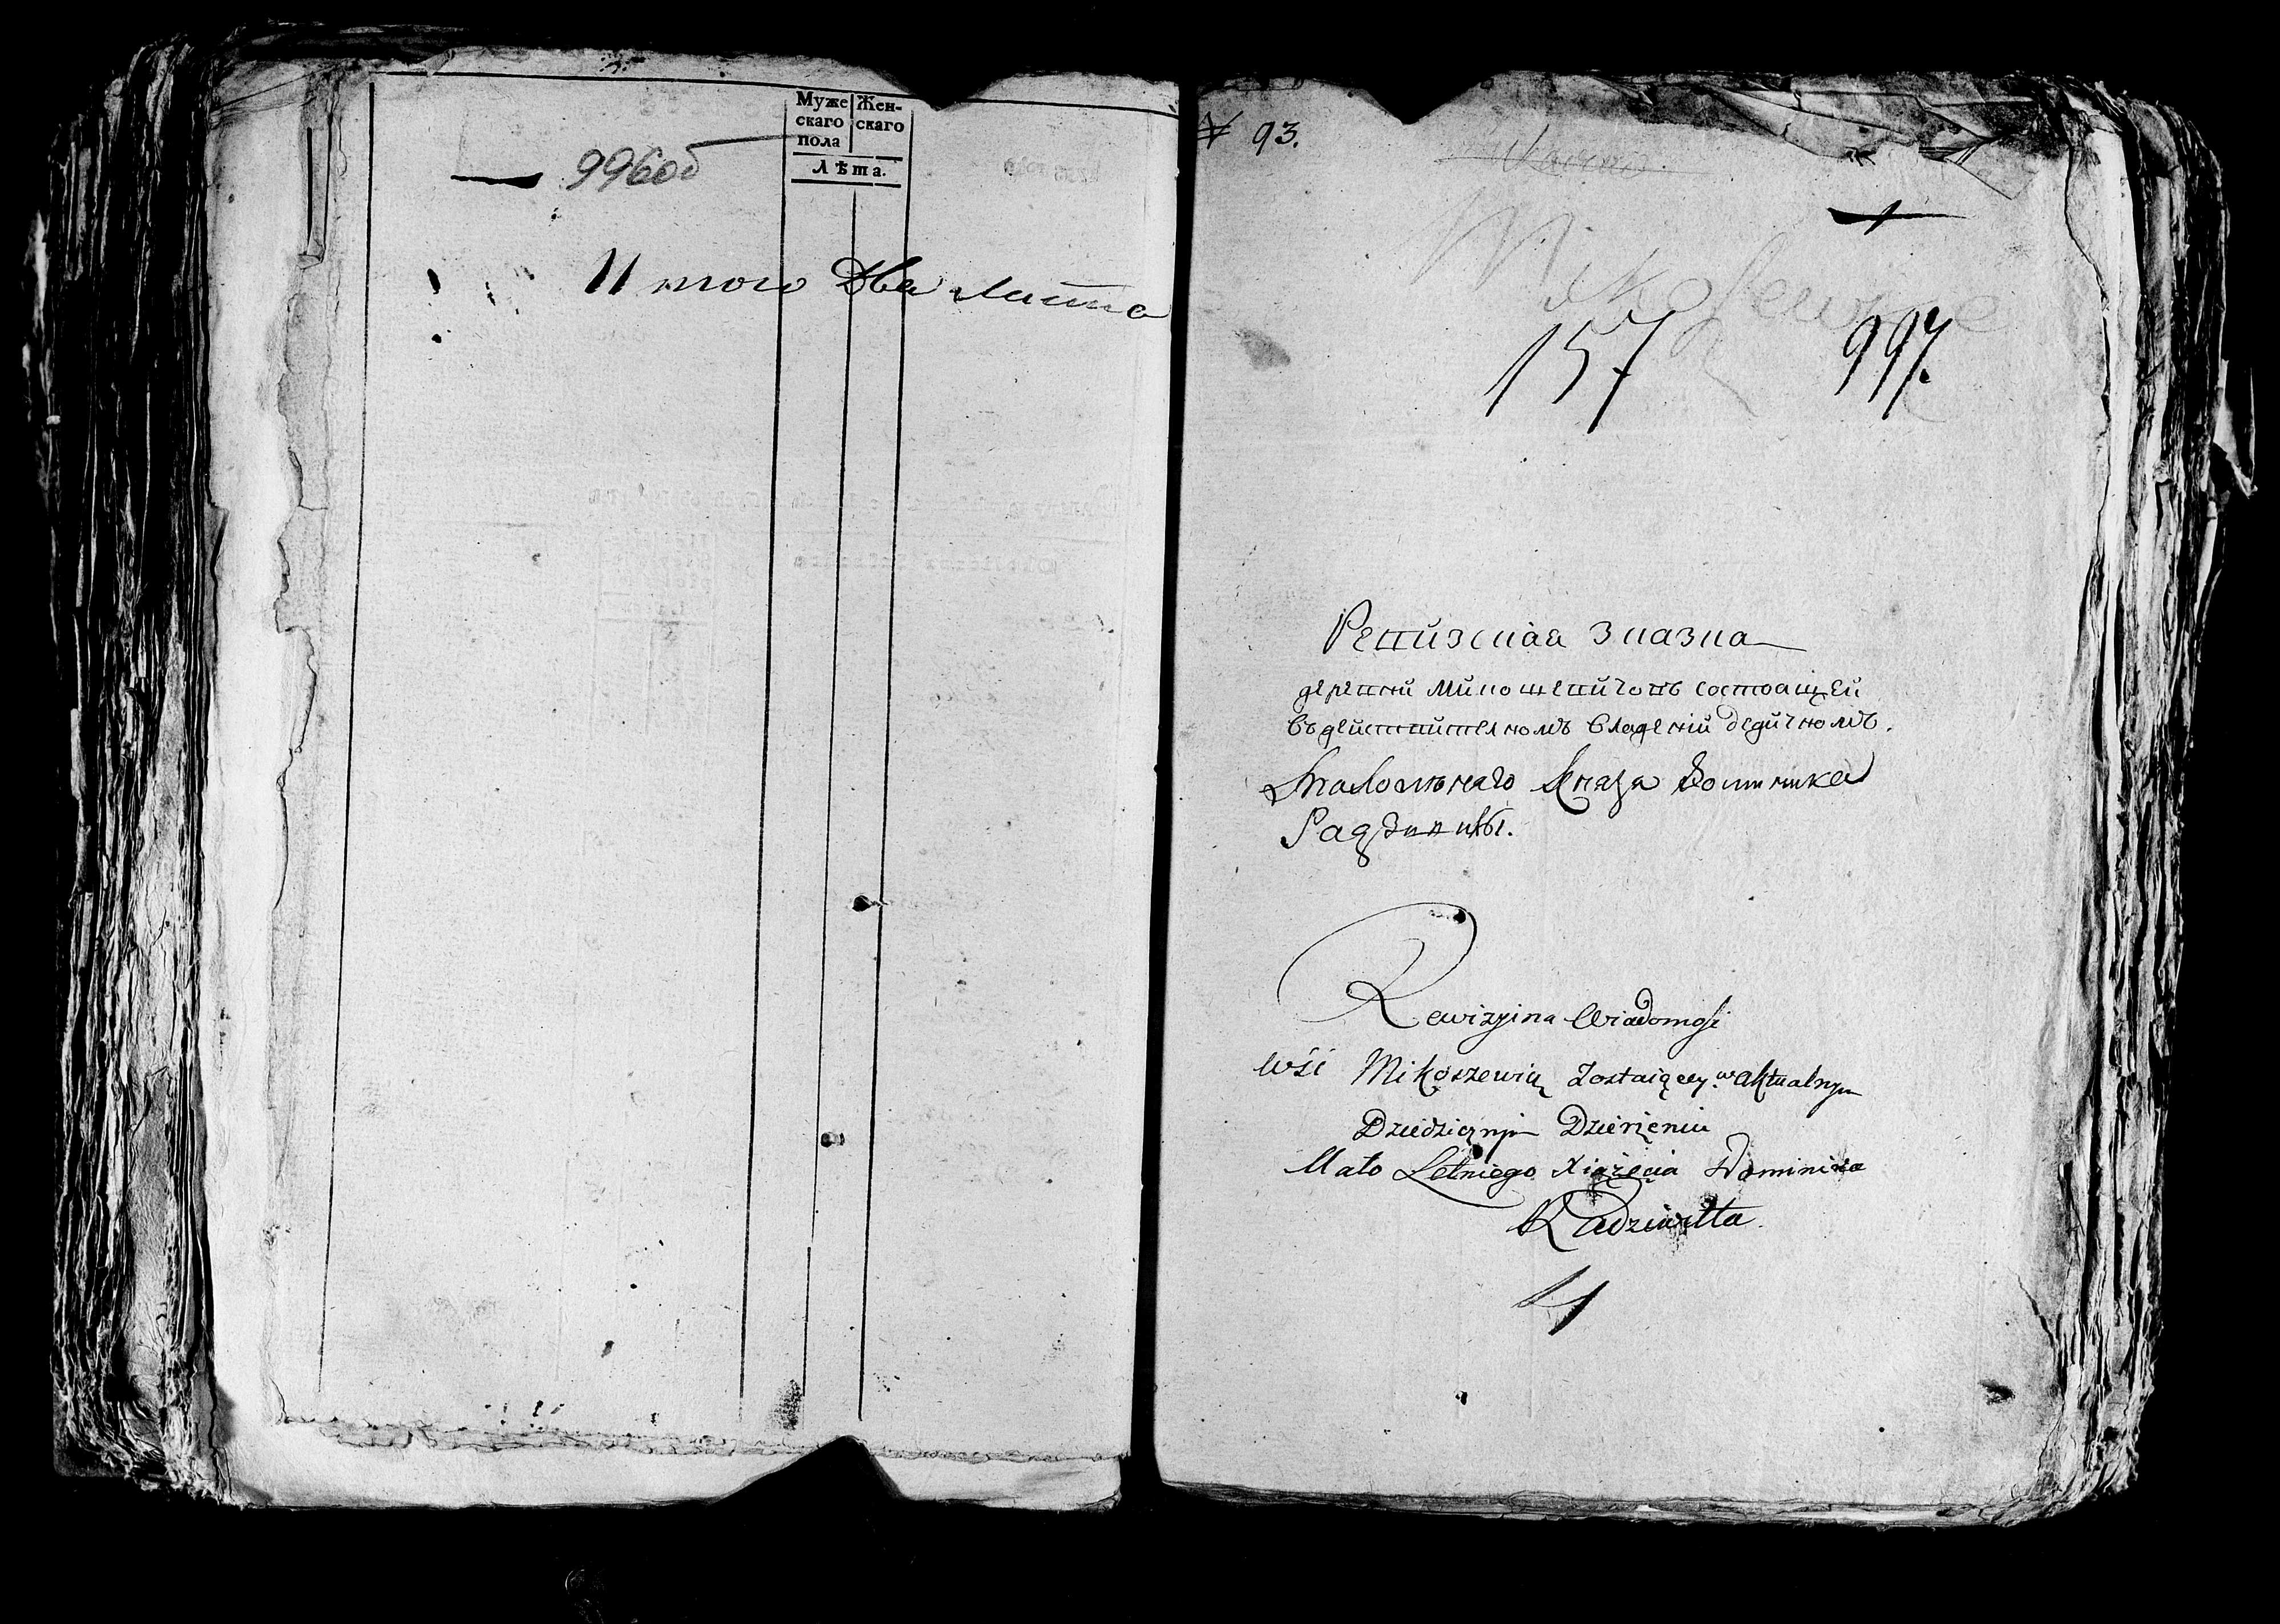 996об
Муже
скаго
пола
Жен-
скаго
Лѣта.
Итого два листа
№ 93.
157
997.
Ревизская Сказка
деревни Микошевичовъ состоящей
въ действителномъ владении дедичномъ.
Малолѣтнаго Князя Доминика
Радзивилы.
Rewizyina Wiadomość
Wśi Mikoszewicz Zostaiącey w aktualnym
Dziedzicznym Dzierżeniu
Mało Letniego Xiążęcia Dominika
Radziwiłła.
4